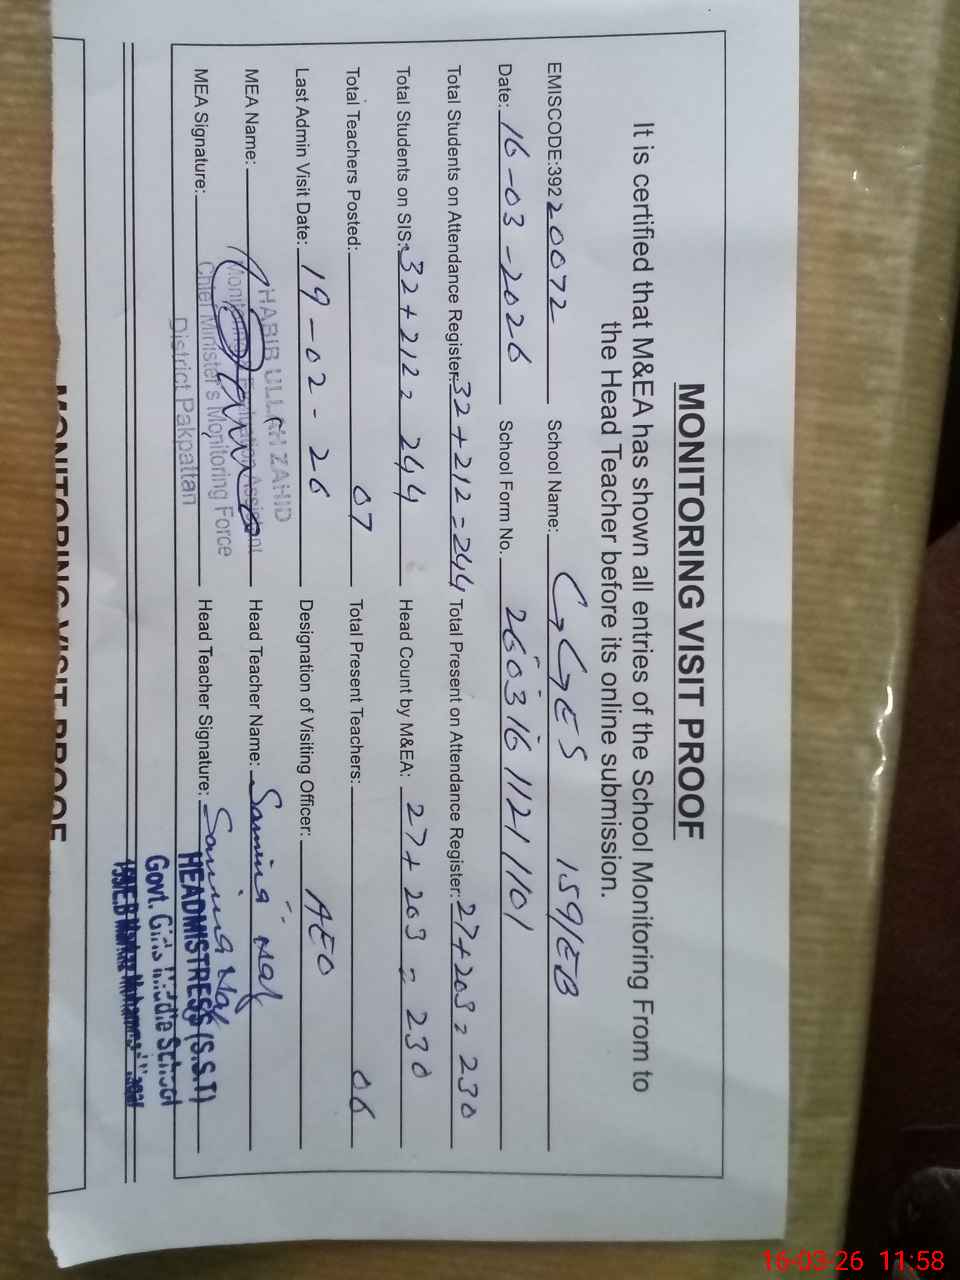 MONITORING VISIT PROOF
It is certified that M&EA has shown all entries of the School Monitoring From to
the Head Teacher before its online submission.
EMISCODE:392 20072 School Name: GGES 159/EB
Date: 16-03-2026 School Form No. 260316 1121 1101
Total Students on Attendance Register: 32+212=244 Total Present on Attendance Register: 27+203=230
Total Students on SIS: 32+212= 244 Head Count by M&EA: 27+203 = 230
Total Teachers Posted: 07 Total Present Teachers: 06
Last Admin Visit Date: 19-02-26 Designation of Visiting Officer: AEO
MEA Name: Head Teacher Name: Samina
MEA Signature: Head Teacher Signature: Samina
HABIB ULLAH ZAHID
Monitoring & Evaluation Assistant
Chief Minister's Monitoring Force
District Pakpattan
HEADMISTRESS (S.S.T)
Govt. Girls Middle School
159/E.B
MONITORING VISIT PROOF
16-03-26 11:58